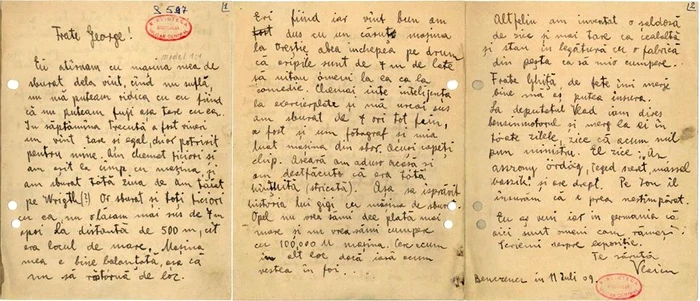 8597
1
BIBLIOTECA
Frate George!
Eu atîrnam cu mașina mea de
sburat dela vînt, cînd nu suflă,
nu mă puteam ridica cu ea fiind
că nu puteam fuji așa tare cu ea.
In săptămîna trecută a fost vineri
un vînt tare și egal, dar potrivit
pentru mine. Am chemat ficiori și
am eșit la cîmp cu mașina, și
am sburat tótă ziua de am făcut
pe Wright(!) Or sburat și toți ficiori
cu ea, nu o lăsam mai sus de 7 m
apoi la distantă de 500 m, cît
era locul de mare. Mașina
mea e bine balantată, așa că
nu să rătórnă de loc.
Eri fiind iar vînt bun am
dus cu un căruț mașina
la Orestie, abea încăpea pe drum
că aripile sunt de 7 m de late
să uitau ómeni la ea ca la
comedie. Chemai inteligența
la ecserciții și mă urcai sus
am sburat de 4 ori tot fain,
a fost și un fotograf și mia
luat mașina din sbor, acuș capeți
clip. Aseară am adus acasă și
am desfăcut că era tótă
(stricată). Așa se ispravi
historia lui gigi cu mașina de sburat
Opel nu vrea sămi dee plată mai
mare și nu vrea sămi cumpere
cu 100,000 M mașina. Cerc acum
în alt loc dacă iasă acum
vestea în foi...
2
Altfeliu am inventat o
de zic și mai tare ca cealaltă
și stau în legătură cu o fabrică
din pesta ca să mio cumpere..
Frate Ghiță, de fete îmi merje
bine mă aș putea insura.
La deputatul Vlad iam dires
benzinmotorul și merg la ei în
tóte zilele, zice că acum mil
pun ministru. El zice: Az
aszony ördög, teged szent mással
beszél și are drept. Pe Ion îl
insurăm că e prea nestîmpărat.
Eu aș veni iar in Germania că
aici sunt ómeni cam rămași.
Scriemi despre espoziție.
Te sărută
Vlaicu
Benczencz in 11 Juli 09.